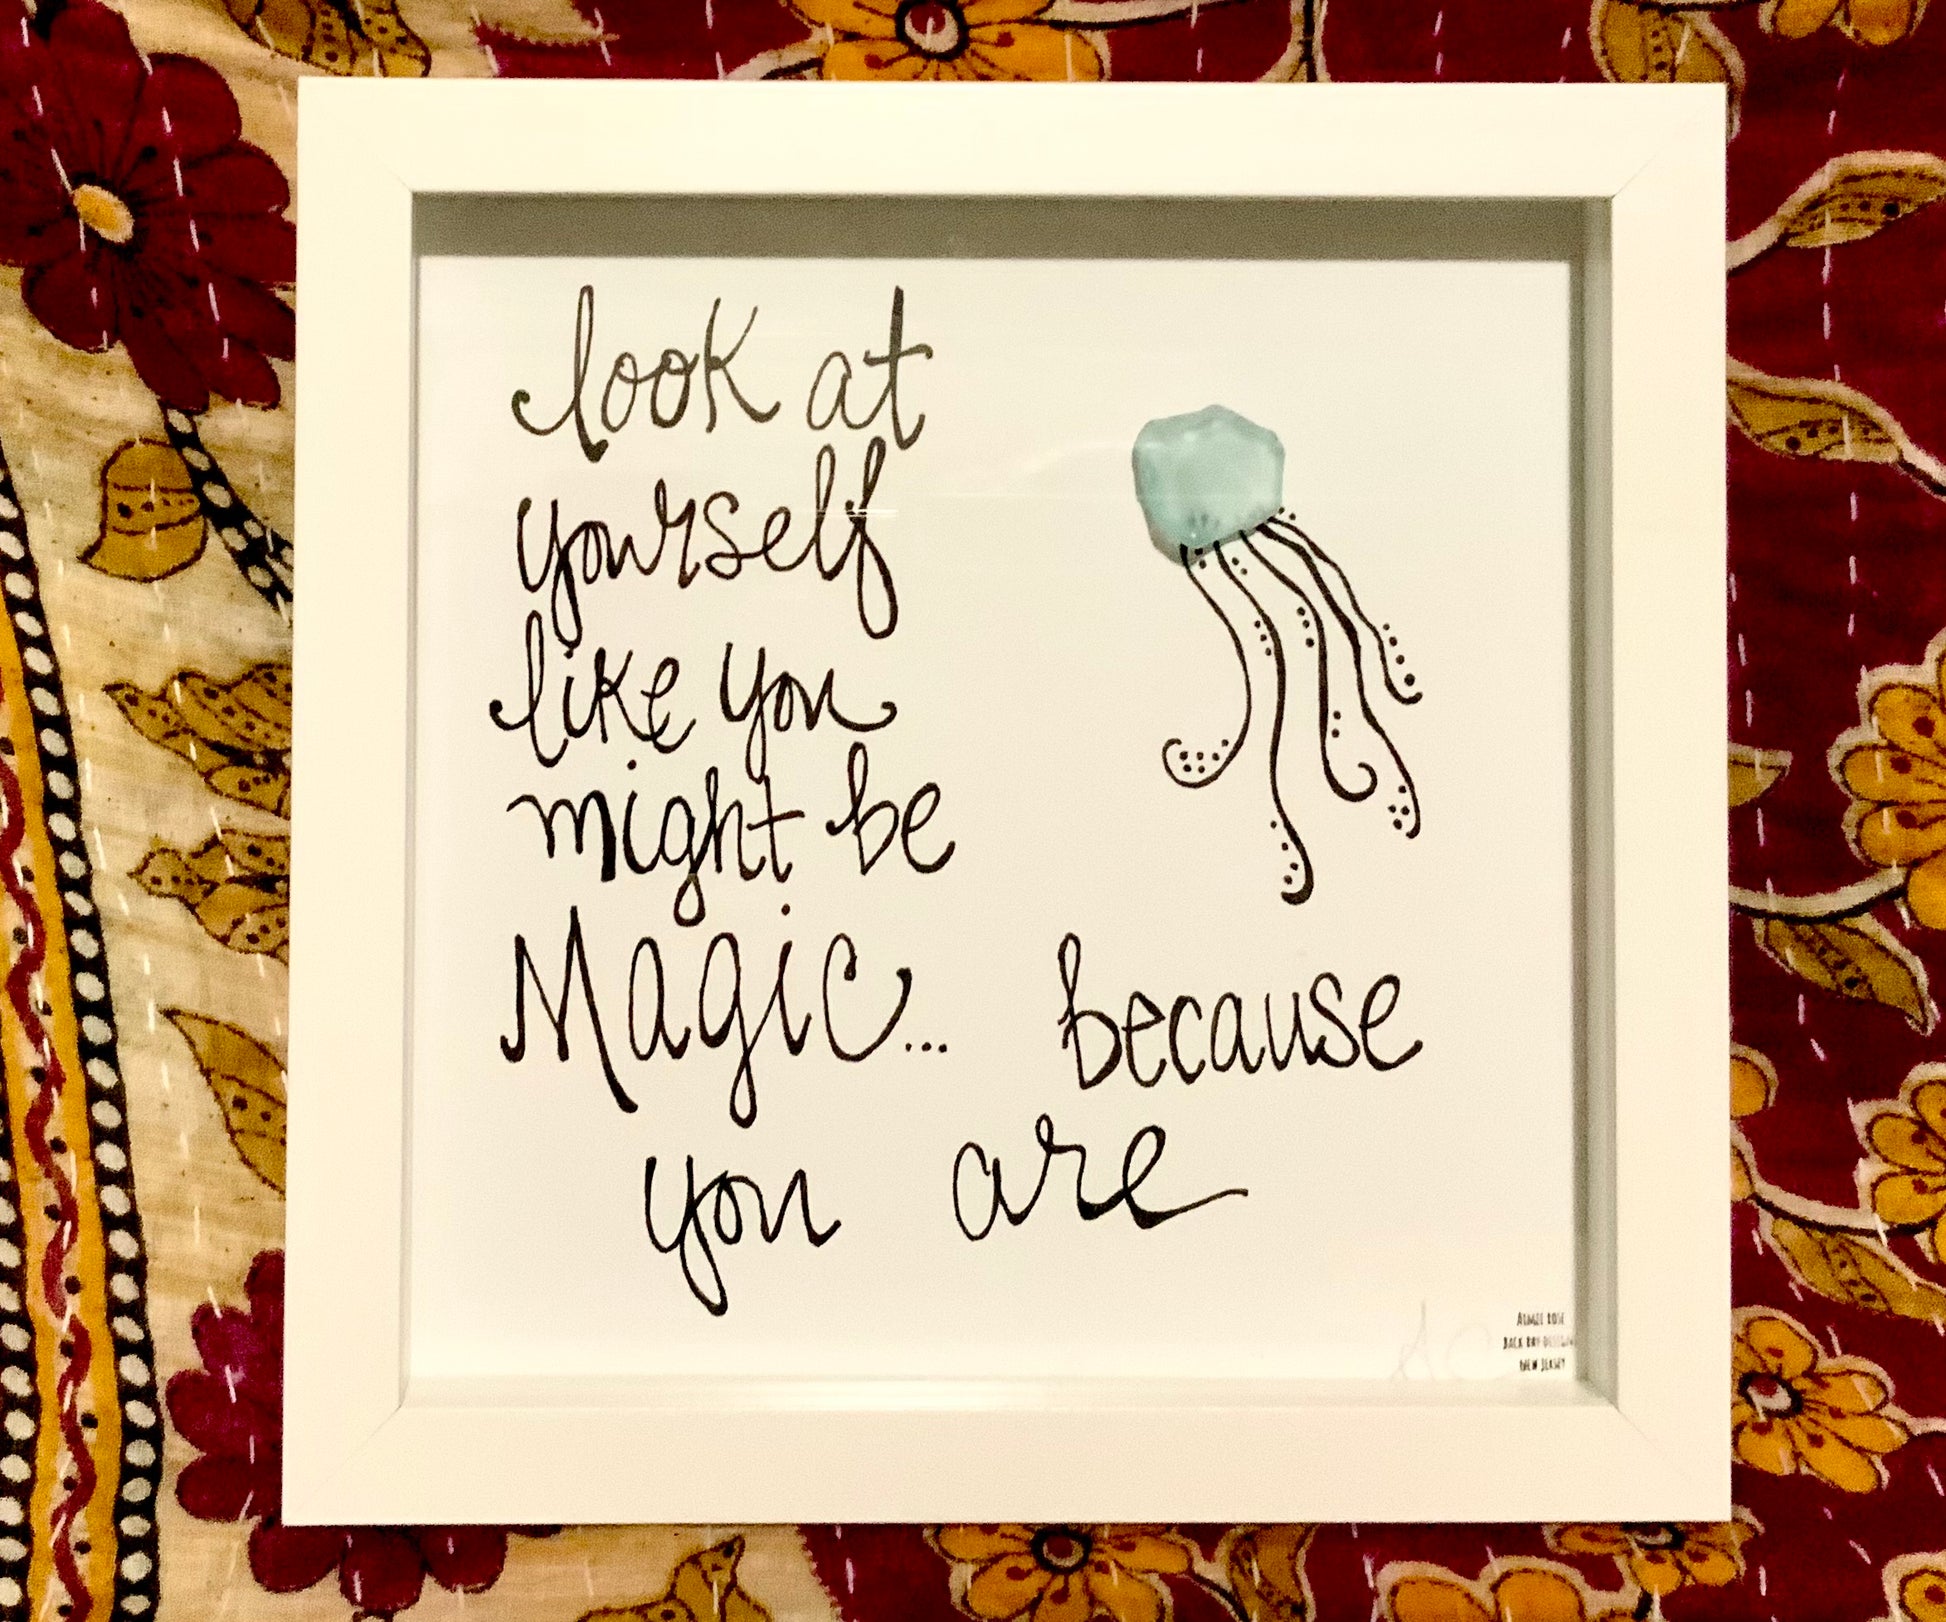 look at
yourself
like you
might be
Magic...
because
you are
Aimee Rose
Back Bay Design
New Jersey